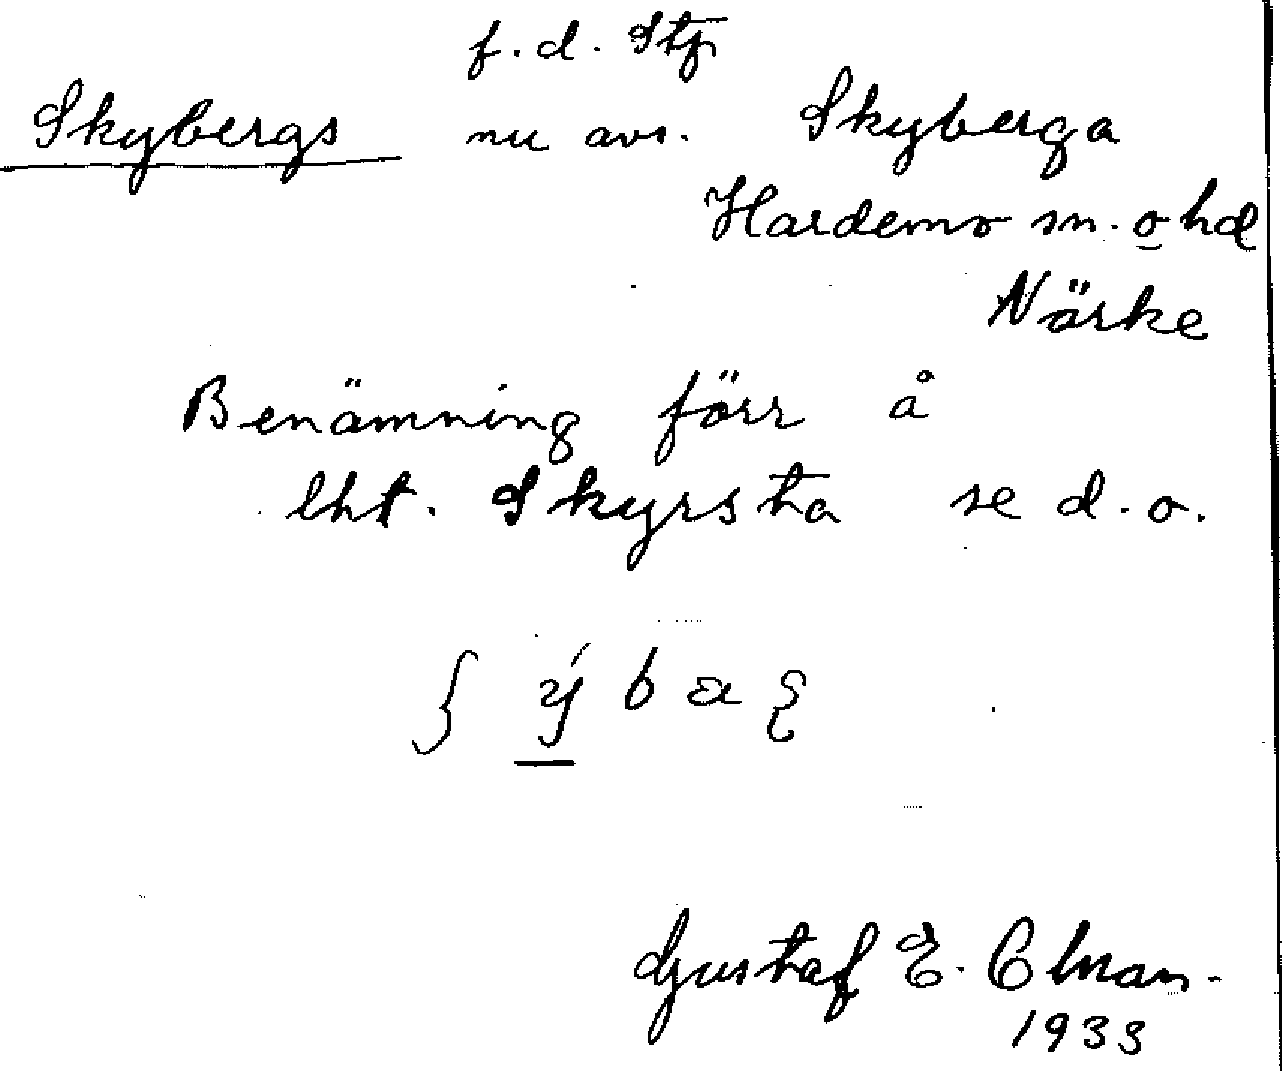 f.d. Stf
Skybergs nu avs. Skyberga
Hardemo sn. o hd
Närke
Benämning förr å
lht. Skyrsta se d.o.
Gustaf E.
1933